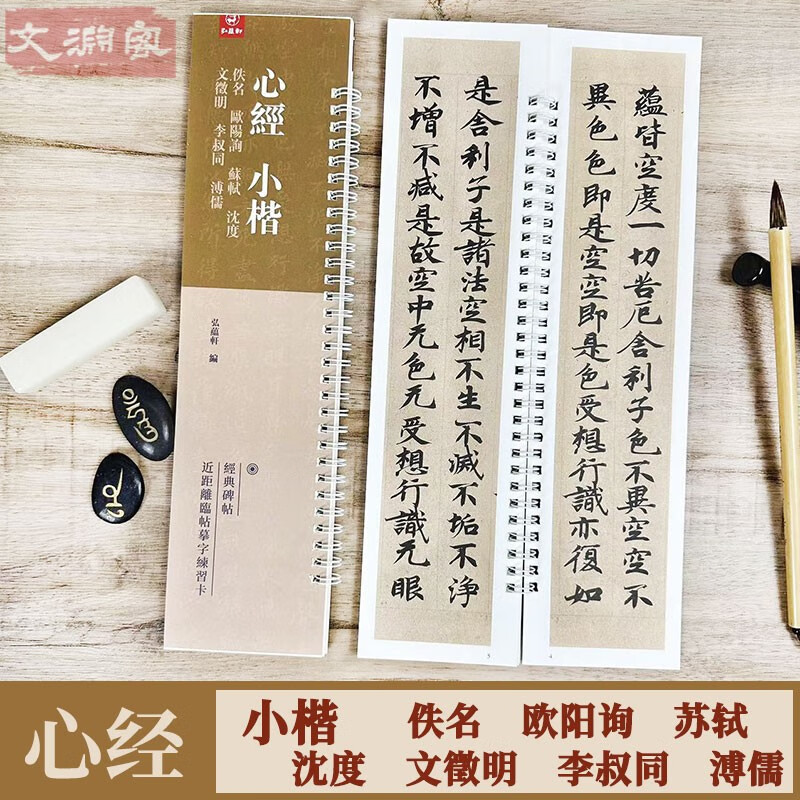 文淵阁
弘蕴軒
心經 小楷
佚名 歐陽詢 蘇軾 沈度
文徵明 李叔同 溥儒
弘蘊軒 編
經典碑帖
近距離臨帖摹字練習卡
蘊皆空度一切苦厄舍利子色不異空空不
異色色即是空空即是色受想行識亦復如
4
是舍利子是諸法空相不生不滅不垢不浄
不增不减是故空中无色无受想行識无眼
5
心经
小楷 佚名 欧阳询 苏轼
沈度 文徵明 李叔同 溥儒